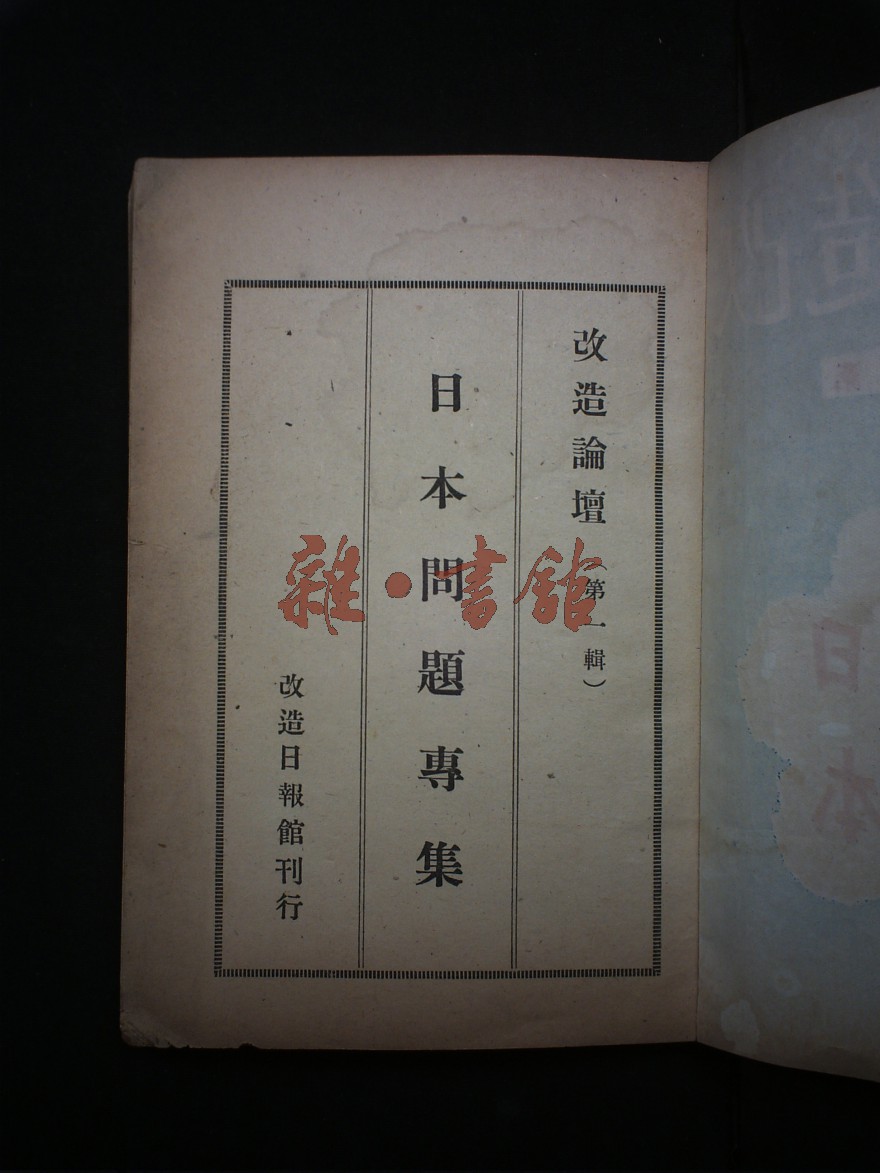 改造論壇（第一輯）
日本問題專集
改造日報館刊行
雜·書館
日本